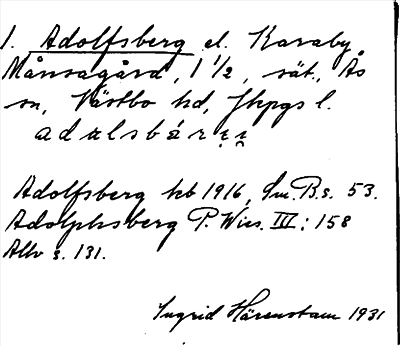 1. Adolfsberg el. Karaby
Månsagård, 1 1/2, sät., Ås
sn, Västbo hd, Jkpgs l.
adɑlsbárɛ̣i
Adolfsberg kb 1916, Sm.B.s. 53.
Adolphsberg P. Wies. III: 158
Allv s. 131.
Ingrid Härenstam 1931